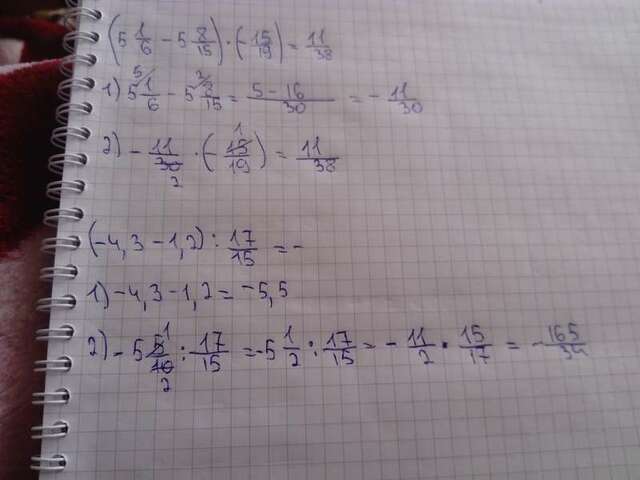 (5 1/6 - 5 8/15) · (-15/19) = 11/38
1) 5 1/6 - 5 8/15 = 5 - 16/30 = - 11/30
2) - 11/30 · (- 15/19) = 11/38
(-4,3 - 1,2) : 17/15 = -
1) -4,3 - 1,2 = -5,5
2) - 5 5/10 : 17/15 = -5 1/2 : 17/15 = - 11/2 · 15/17 = - 165/34